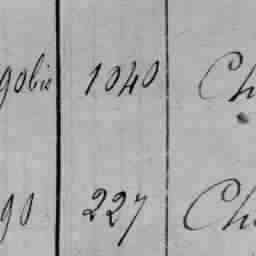 90bis 1040 Ch
90 227 Ch